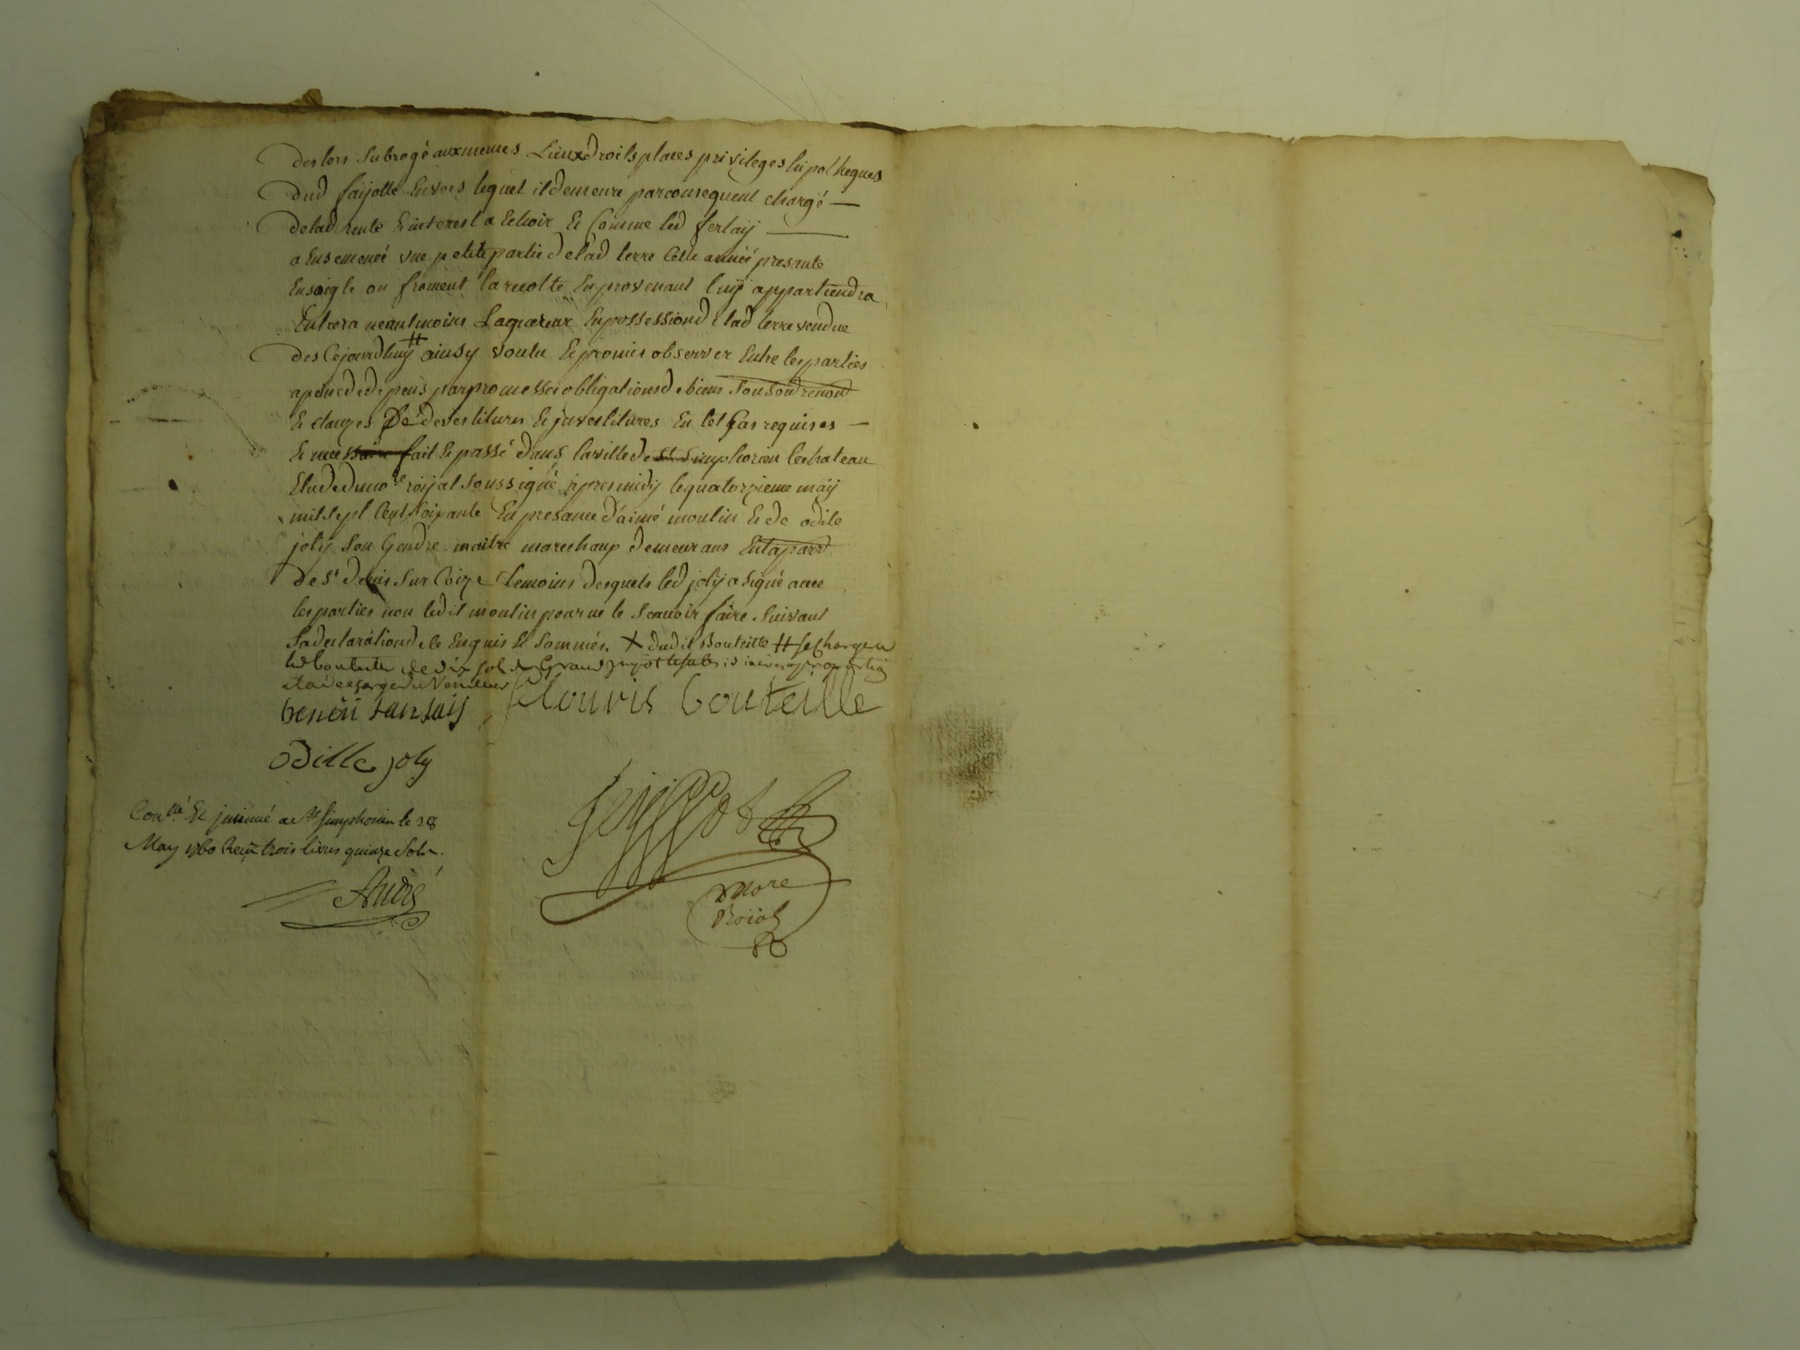 des lors subrogé aux memes Lieux droits places privileges hipotheques
dud faijolle Envers lequel il demeure par consequent chargé
delad rente & interest a Echoir Et Comme led ferlaij
a Ensemencé une petite partie delad terre Cette année presante
En soigle ou froment la recolte En provenant luij appartiendra
Entrera neantmoins Laquereur En possession delad terre vendue
des Cejourdhuij # ainsy voulu Et promis observer Entre les parties
a peine de depens par promesses obligations de biens
Et clauzes De devestitures Et investitures En tel Cas requises
Et fait Et passé dans la ville de st Simphorien le chateau
Etude du nore roijal soussigné apres midij le quatorzieme maij
mil sept Cent soixante En presance d'aimé moulin Et de odile
joly son Gendre maitre marechaux demeurans
de st denis sur Coize temoins desquels led jolij a signé avec
les parties non ledit moulin pour ne le scavoir faire suivant
sa declaration de le Enquis Et sommés. X dudit Bouteille # se Chargera
led bouteille de six sols
du Vendeur
benoit
Clouvis bouteille
odille joly
Conllé Et insinué a St simphorien le 28
May 1760 Receu trois livres quinze sols.
André
nore
Roial